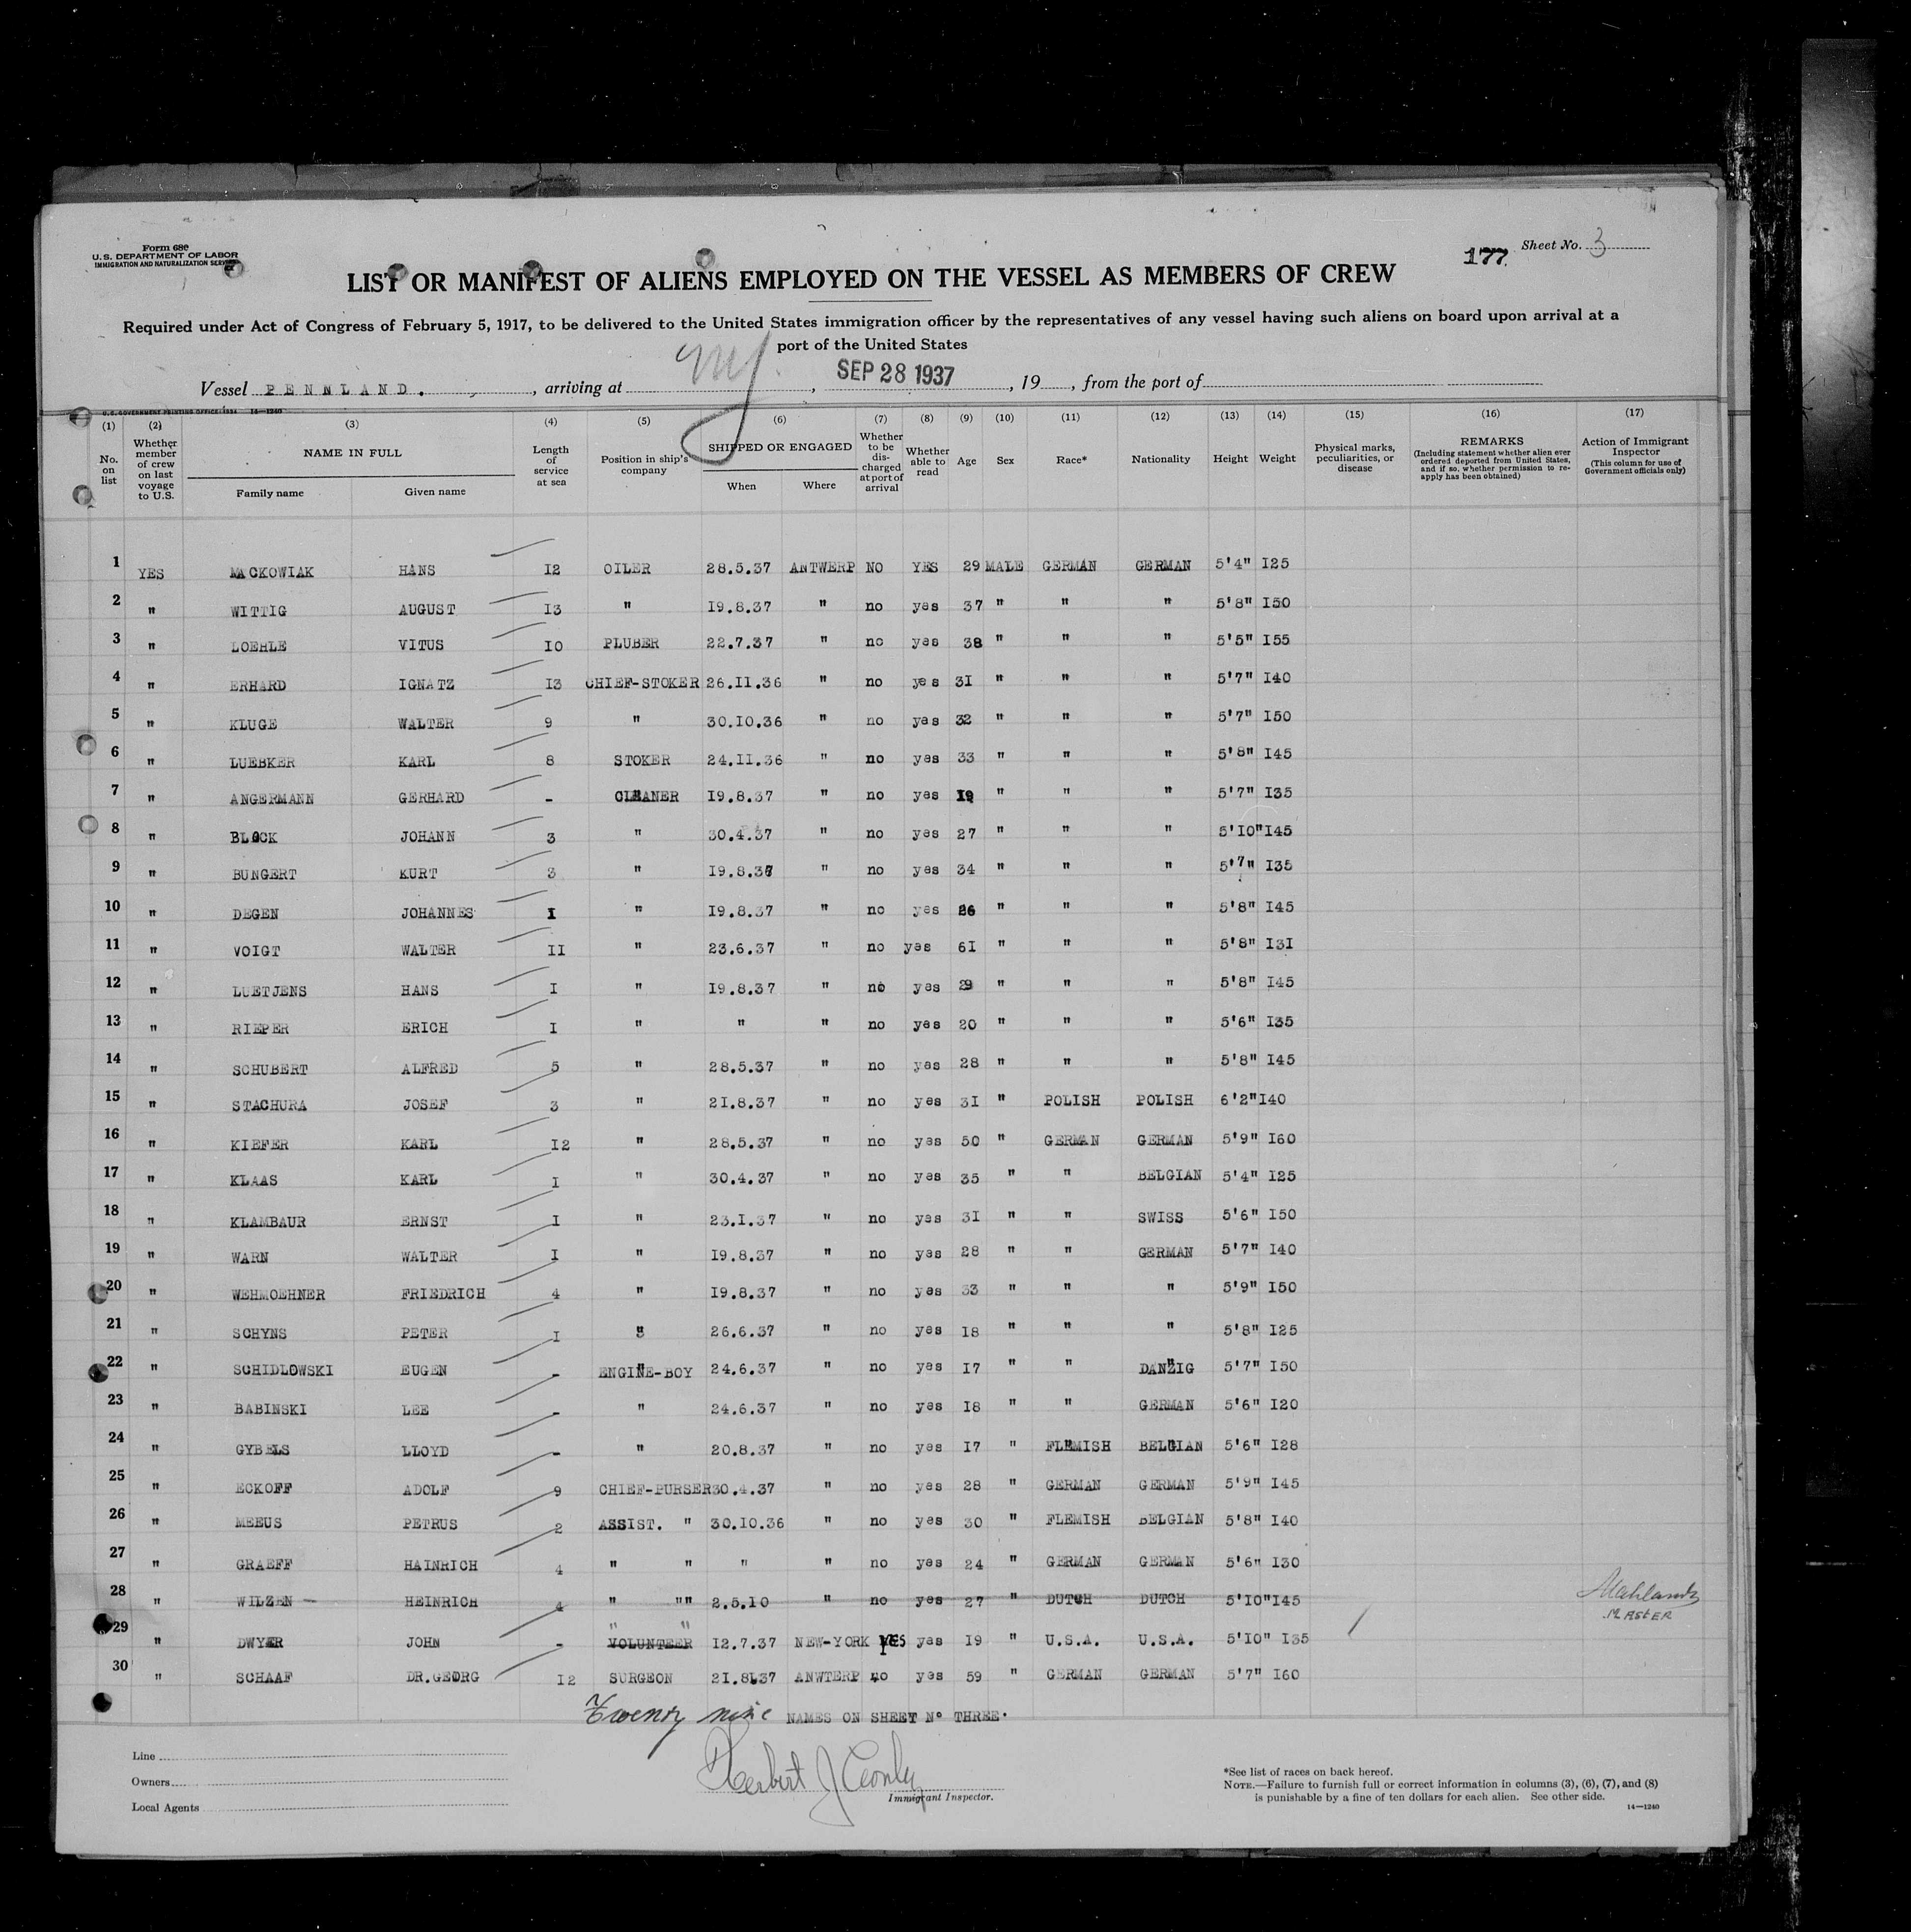 Form 680
U. S. DEPARTMENT OF LABOR
IMMIGRATION AND NATURALIZATION SERVICE
177
Sheet No. 3
LIST OR MANIFEST OF ALIENS EMPLOYED ON THE VESSEL AS MEMBERS OF CREW
Required under Act of Congress of February 5, 1917, to be delivered to the United States immigration officer by the representatives of any vessel having such aliens on board upon arrival at a
port of the United States
Vessel PENNLAND. , arriving at NY. , SEP 28 1937 , 19 , from the port of
U. S. GOVERNMENT PRINTING OFFICE: 1934 14—1240
(1) (2) (3) (4) (5) (6) (7) (8) (9) (10) (11) (12) (13) (14) (15) (16) (17)
No. on list
Whether member of crew on last voyage to U.S.
NAME IN FULL
Family name Given name
Length of service at sea
Position in ship's company
SHIPPED OR ENGAGED
When Where
Whether to be discharged at port of arrival
Whether able to read
Age
Sex
Race*
Nationality
Height
Weight
Physical marks, peculiarities, or disease
REMARKS
(Including statement whether alien ever ordered deported from United States, and if so, whether permission to reapply has been obtained)
Action of Immigrant Inspector
(This column for use of Government officials only)
1 YES MACKOWIAK HANS I2 OILER 28.5.37 ANTWERP NO YES 29 MALE GERMAN GERMAN 5'4" I25
2 " WITTIG AUGUST I3 " I9.8.37 " no yes 37 " " " 5'8" I50
3 " LOEHLE VITUS I0 PLUBER 22.7.37 " no yes 38 " " " 5'5" I55
4 " ERHARD IGNATZ I3 CHIEF-STOKER 26.II.36 " no yes 3I " " " 5'7" I40
5 " KLUGE WALTER 9 " 30.I0.36 " no yes 32 " " " 5'7" I50
6 " LUEBKER KARL 8 STOKER 24.II.36 " no yes 33 " " " 5'8" I45
7 " ANGERMANN GERHARD - CLEANER I9.8.37 " no yes I9 " " " 5'7" I35
8 " BLOCK JOHANN 3 " 30.4.37 " no yes 27 " " " 5'I0" I45
9 " BUNGERT KURT 3 " I9.8.37 " no yes 34 " " " 5'7" I35
10 " DEGEN JOHANNES I " I9.8.37 " no yes 26 " " " 5'8" I45
11 " VOIGT WALTER II " 23.6.37 " no yes 6I " " " 5'8" I3I
12 " LUETJENS HANS I " I9.8.37 " no yes 29 " " " 5'8" I45
13 " RIEPER ERICH I " " " no yes 20 " " " 5'6" I35
14 " SCHUBERT ALFRED 5 " 28.5.37 " no yes 28 " " " 5'8" I45
15 " STACHURA JOSEF 3 " 2I.8.37 " no yes 3I " POLISH POLISH 6'2" I40
16 " KIEFER KARL I2 " 28.5.37 " no yes 50 " GERMAN GERMAN 5'9" I60
17 " KLAAS KARL I " 30.4.37 " no yes 35 " " BELGIAN 5'4" I25
18 " KLAMBAUR ERNST I " 23.I.37 " no yes 3I " " SWISS 5'6" I50
19 " WARN WALTER I " I9.8.37 " no yes 28 " " GERMAN 5'7" I40
20 " WEHMOEHNER FRIEDRICH 4 " I9.8.37 " no yes 33 " " " 5'9" I50
21 " SCHYNS PETER I " 26.6.37 " no yes I8 " " " 5'8" I25
22 " SCHIDLOWSKI EUGEN - ENGINE-BOY 24.6.37 " no yes I7 " " DANZIG 5'7" I50
23 " BABINSKI LEE - " 24.6.37 " no yes I8 " " GERMAN 5'6" I20
24 " GYBELS LLOYD - " 20.8.37 " no yes I7 " FLEMISH BELGIAN 5'6" I28
25 " ECKOFF ADOLF 9 CHIEF-PURSER 30.4.37 " no yes 28 " GERMAN GERMAN 5'9" I45
26 " MEEUS PETRUS 2 ASSIST. " 30.I0.36 " no yes 30 " FLEMISH BELGIAN 5'8" I40
27 " GRAEFF HAINRICH 4 " " " " no yes 24 " GERMAN GERMAN 5'6" I30
28 " WILZEN HEINRICH 4 " "" 2.5.I0 " no yes 27 " DUTCH DUTCH 5'I0" I45
MASTER
29 " DWYER JOHN - " " VOLUNTEER I2.7.37 NEW-YORK YES yes I9 " U.S.A. U.S.A. 5'I0" I35
30 " SCHAAF DR.GEORG I2 SURGEON 2I.8.37 ANWTERP no yes 59 " GERMAN GERMAN 5'7" I60
Twenty nine NAMES ON SHEET No THREE.
Line
Owners
Local Agents
Herbert J Conley
Immigrant Inspector.
*See list of races on back hereof.
NOTE.—Failure to furnish full or correct information in columns (3), (6), (7), and (8)
is punishable by a fine of ten dollars for each alien. See other side.
14—1240